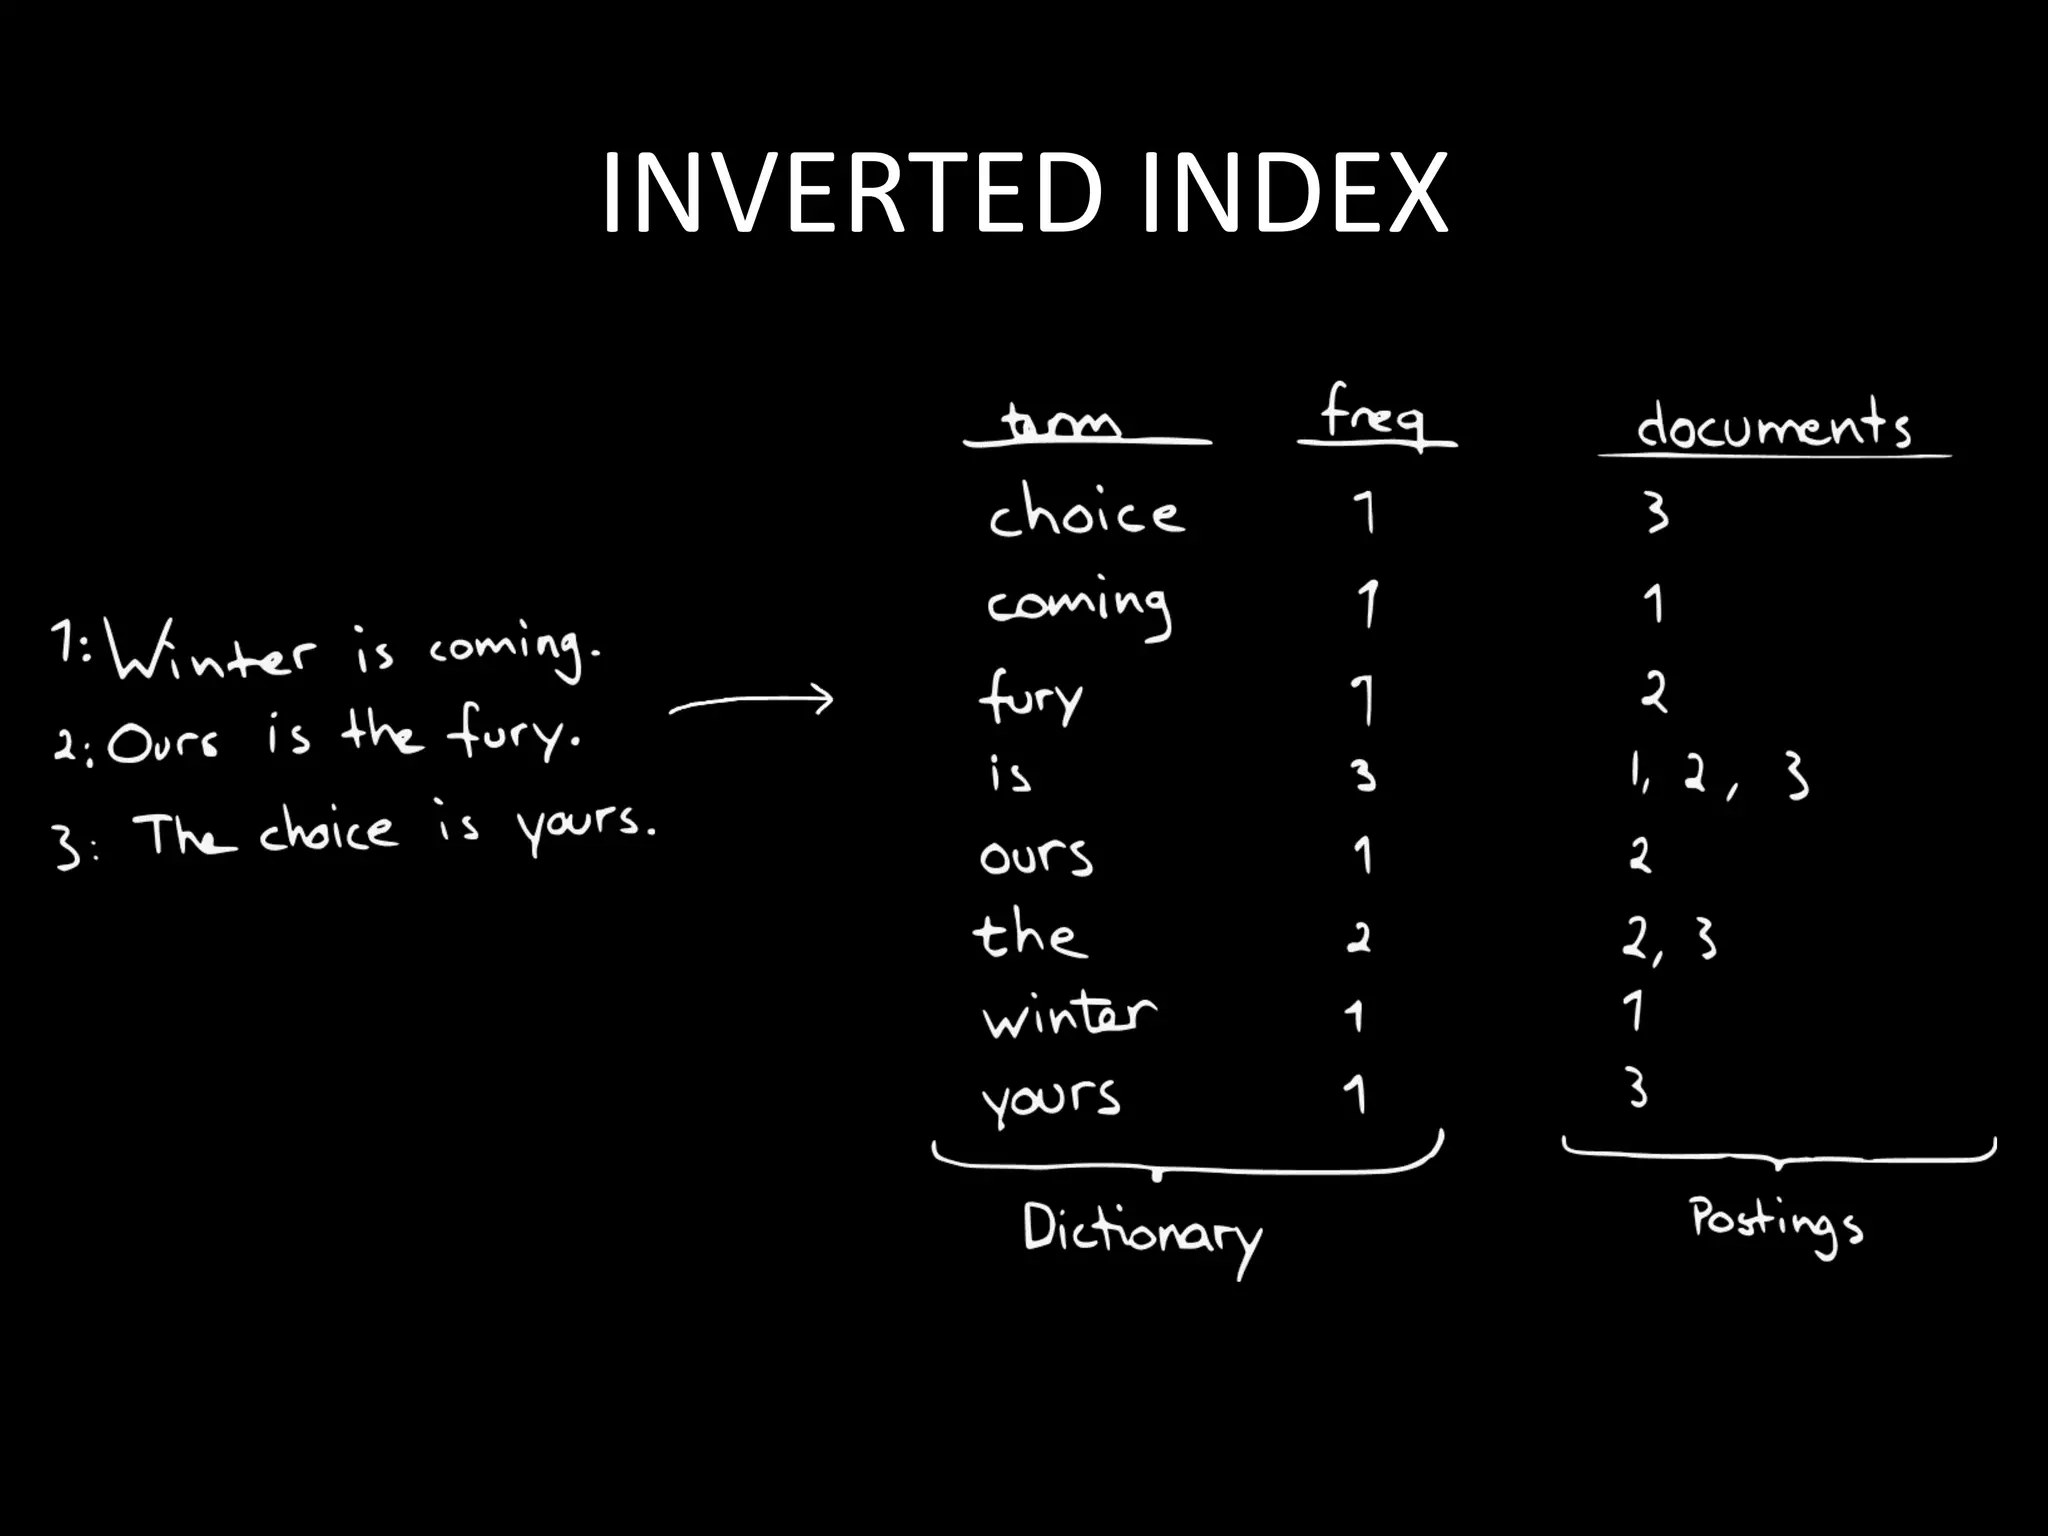 INVERTED INDEX
1: Winter is coming.
2: Ours is the fury.
3: The choice is yours.
term freq documents
choice 1 3
coming 1 1
fury 1 2
is 3 1, 2, 3
ours 1 2
the 2 2, 3
winter 1 1
yours 1 3
Dictionary Postings